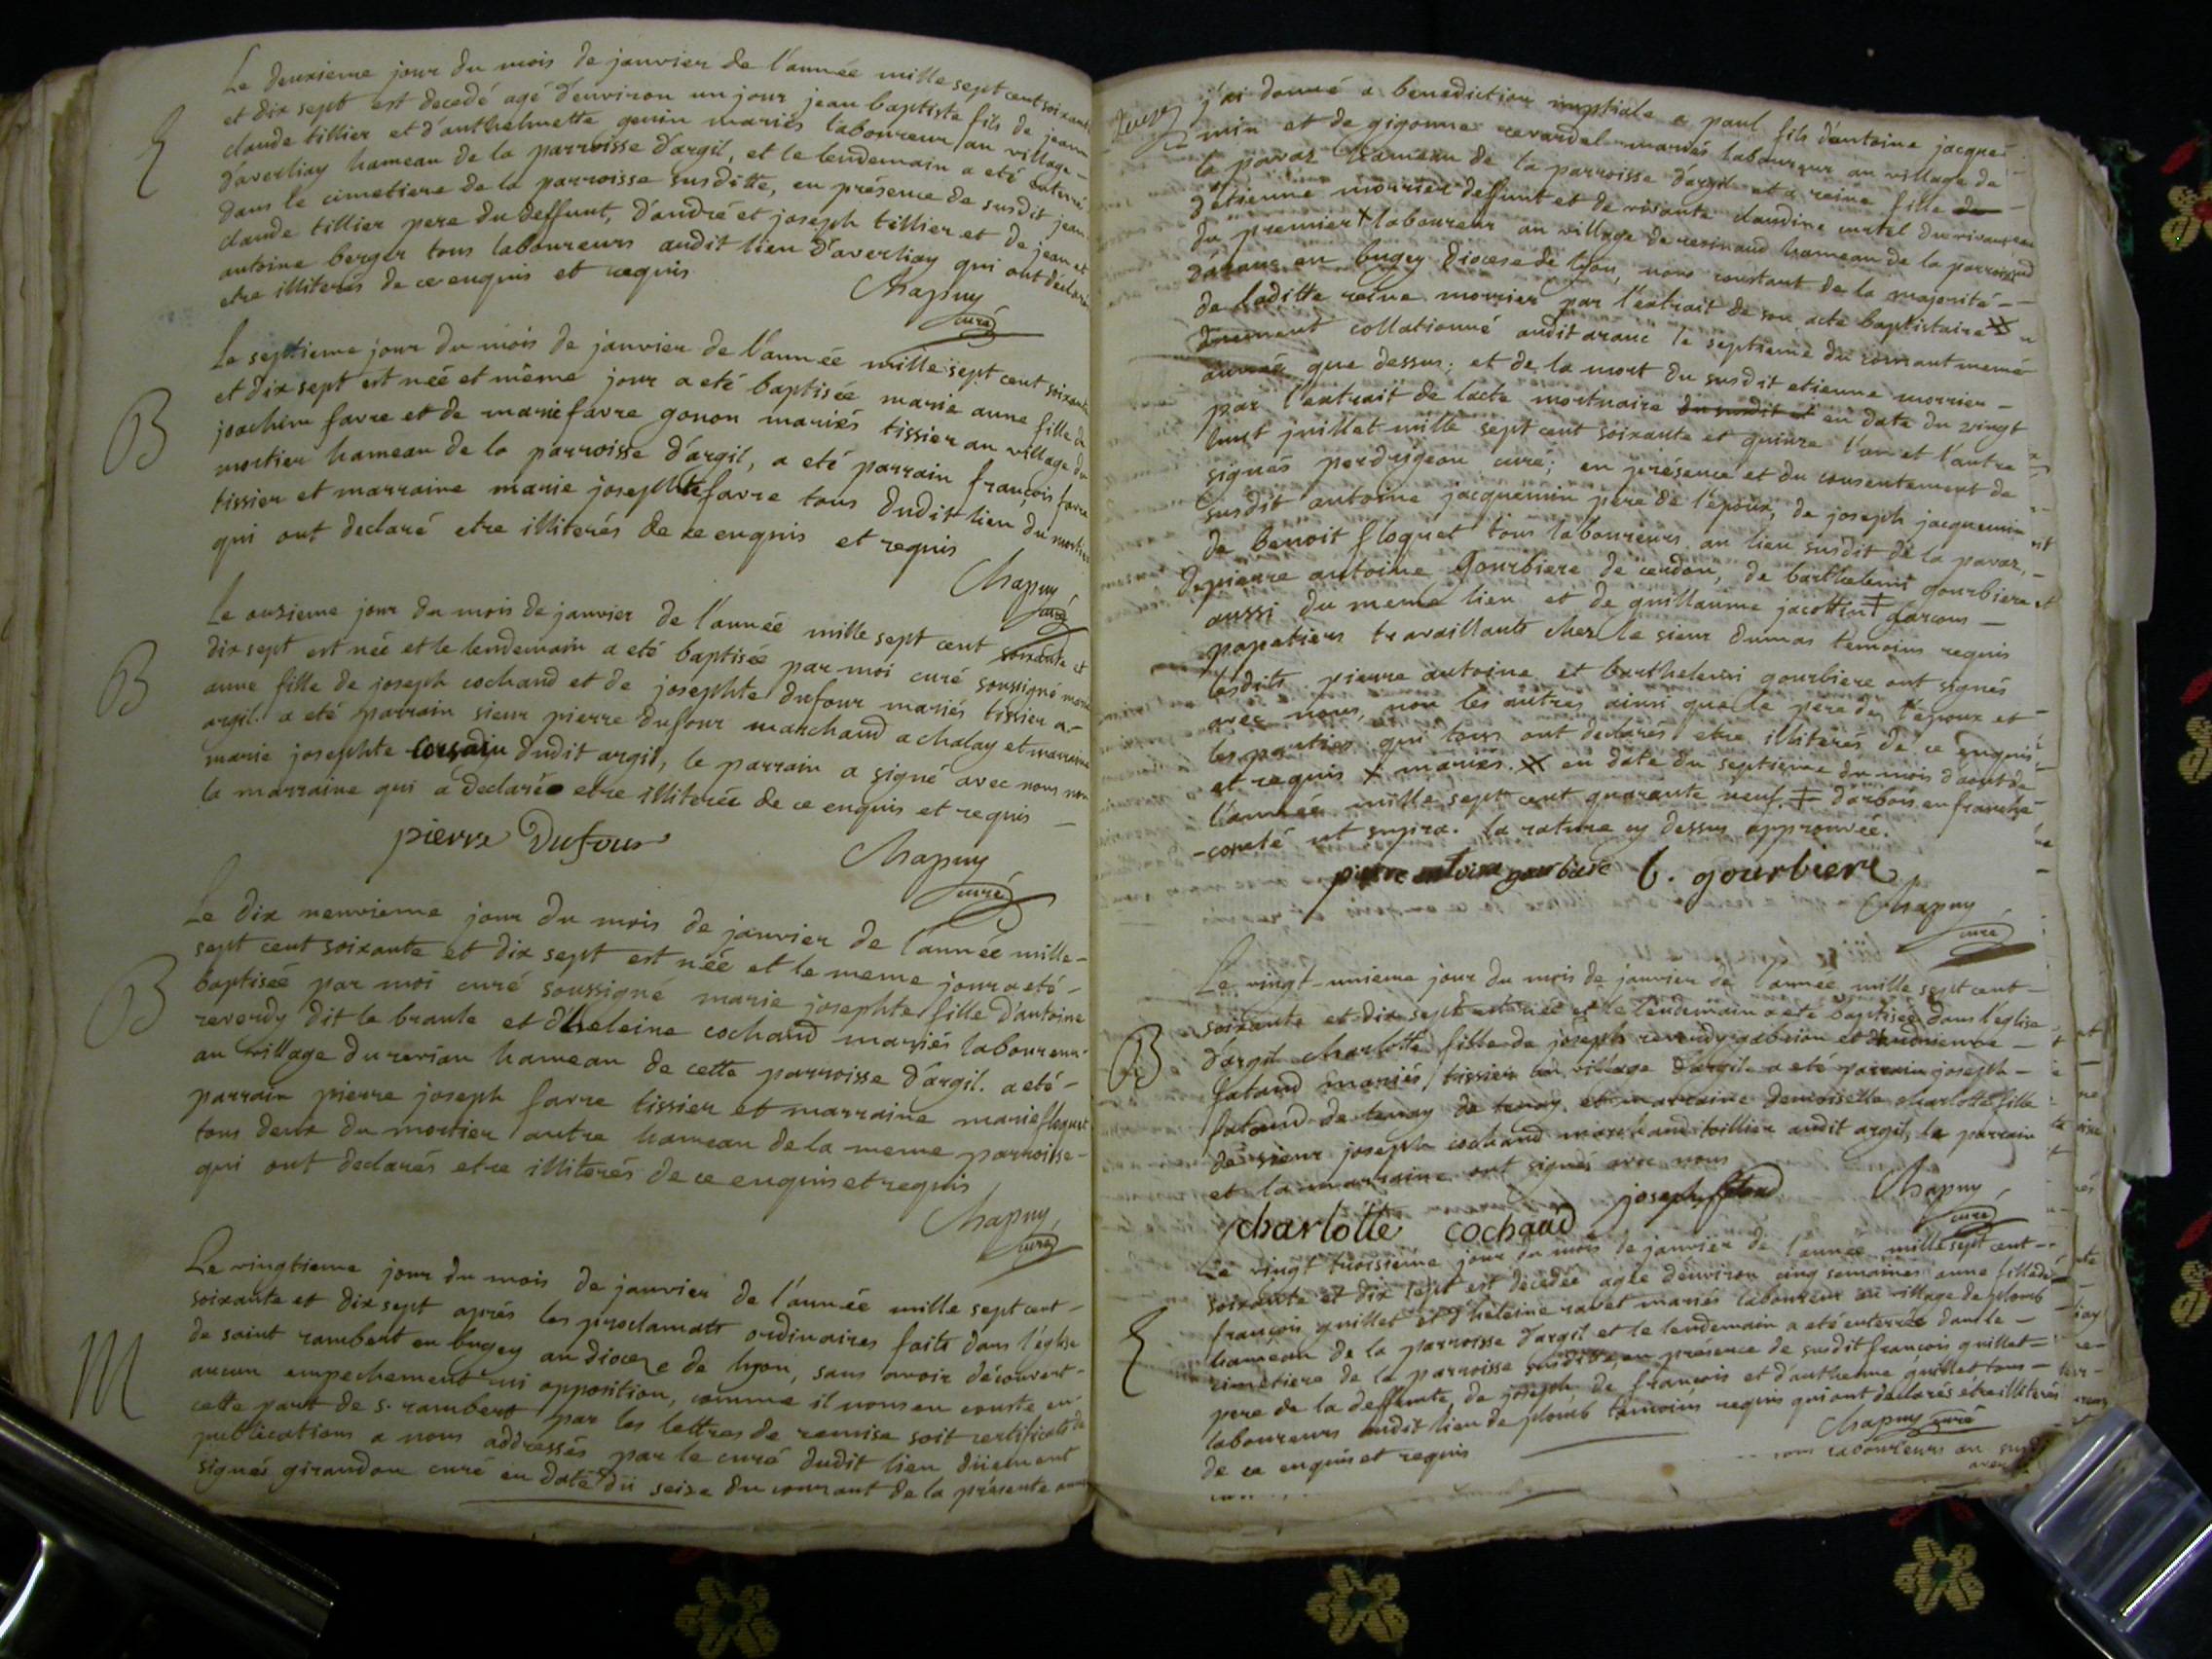 Le deuxieme jour du mois de janvier de l'année mille sept cent soixante
et dix sept est decedé agé d'environ un jour jean baptiste fils de jean
claude tillier et d'anthelmette genin mariés laboureur au village
d'averliay hameau de la parroisse d'argil, et le lendemain a eté enterré
dans le cimetiere de la parroisse susditte, en présence de susdit jean
claude tillier pere du deffunt, d'andré et joseph tillier et de jean et
antoine berger tous laboureurs audit lieu d'averliay qui ont déclaré
etre illiterés de ce enquis et requis
Chapuy
curé
Le septieme jour du mois de janvier de l'année mille sept cent soixante
B
et dix sept est née et même jour a eté baptisée marie anne fille de
joachim favre et de marie favre gonon mariés tissier au village du
mortier hameau de la parroisse d'argil, a eté parrain françois favre
tissier et marraine marie josephte favre tous dudit lieu du mortier
qui ont declaré etre illiterés de ce enquis et requis
Chapuy
curé
Le onzieme jour du mois de janvier de l'année mille sept cent soixante et
B
dix sept est née et le lendemain a eté baptisée par moi curé soussigné marie
anne fille de joseph cochand et de josephte dufour mariés tissier a
argil. a eté parrain sieur pierre dufour marchand a chalay et marraine
marie josephte dudit argil, le parrain a signé avec nous non
la marraine qui a declarée etre illiterée de ce enquis et requis
pierre Dufour
Chapuy
curé
Le dix neuvieme jour du mois de janvier de l'année mille
sept cent soixante et dix sept est née et le meme jour a eté
B
baptisée par moi curé soussigné marie josephte fille d'antoine
reverdy dit le branle et d'heleine cochand mariés laboureur
au village du revian hameau de cette parroisse d'argil. a eté
parrain pierre joseph favre tissier et marraine marie floquet
tous deux du mortier autre hameau de la meme parroisse
qui ont declarés etre illiterés de ce enquis et requis
Chapuy
curé
Le vingtieme jour du mois de janvier de l'année mille sept cent
soixante et dix sept aprés les proclamats ordinaires faits dans l'église
M
de saint rambert en bugey au diocese de lyon, sans avoir découvert
aucun empechement ni opposition, comme il nous en conste en
cette part de s. rambert par les lettres de remise soit certificats de
publications a nous addressés par le curé dudit lieu düement
signés giraudon curé en date dü seize du courant de la présente année
j'ai donné a benediction nuptiale a paul fils d'antoine jacque
min et de gigonne mariés laboureur au village de
la pavaz hameau de la parroisse d'argil et a reine fille de
d'etienne morrier deffunt et de vivante claudine curtel du vivant
du premier + laboureur au village de resinand hameau de la parroisse
d'aranc en bugey diocese de lyon, nous constant de la majorité
de laditte reine morrier par l'extrait de son acte baptistaire
duement collationné audit aranc le septieme du courant meme
année que dessus; et de la mort du susdit etienne morrier
par l'extrait de lacte mortuaire du susdit et en date du vingt
huit juillet mille sept cent soixante et quinze l'un et l'autre
signés perdrigeon curé; en présence et du consentement de
susdit antoine jacquemin pere de l'époux, de joseph jacquemin
de benoit floquet tous laboureurs au lieu susdit de la pavaz,
de pierre antoine gourbiere de cerdon, de barthelemi gourbiere et
aussi du meme lieu et de guillaume jacottin ‡ garcons
papetiers travaillants chez le sieur dumas temoins requis
lesdits pierre antoine et barthelemi gourbiere ont signés
avec nous, non les autres ainsi que le pere de l'époux et
les parties qui tous ont declarés etre illiterés de ce enquis
et requis + mariés. en date du septieme du mois d'aout de
l'année mille sept cent quarante neuf. ‡ d'arbois en franche
-comté ut supra. la rature cy dessus approuvée.
pierre antoine gourbiere b. gourbiere
Chapuy
curé
Le vingt-unieme jour du mois de janvier de l'année mille sept cent
soixante et dix sept est née et le lendemain a eté baptisée dans l'eglise
B
d'argil charlotte fille de joseph reverdy
fatand mariés tissier au village d'argil. a eté parrain joseph
fatand de tenay de tenay et marraine demoiselle charlotte fille
de sieur joseph cochand marchand toillier audit argil, le parrain
et la marraine ont signés avec nous
Chapuy
curé
charlotte cochand
Le vingt troisieme jour du mois de janvier de l'année mille sept cent
soixante et dix sept est decedée agée d'environ cinq semaines anne fille de
françois guillet et d'heleine ravet mariés laboureur au village de plomb
hameau de la parroisse d'argil et le lendemain a eté enterrée dans le
cimetiere de la parroisse susditte, en presence de susdit françois guillet
pere de la deffunte, de joseph, de françois et d'anthelme guillet tous
laboureurs audit lieu de plomb temoins requis qui ont declarés être illiterés
de ce enquis et requis
Chapuy curé